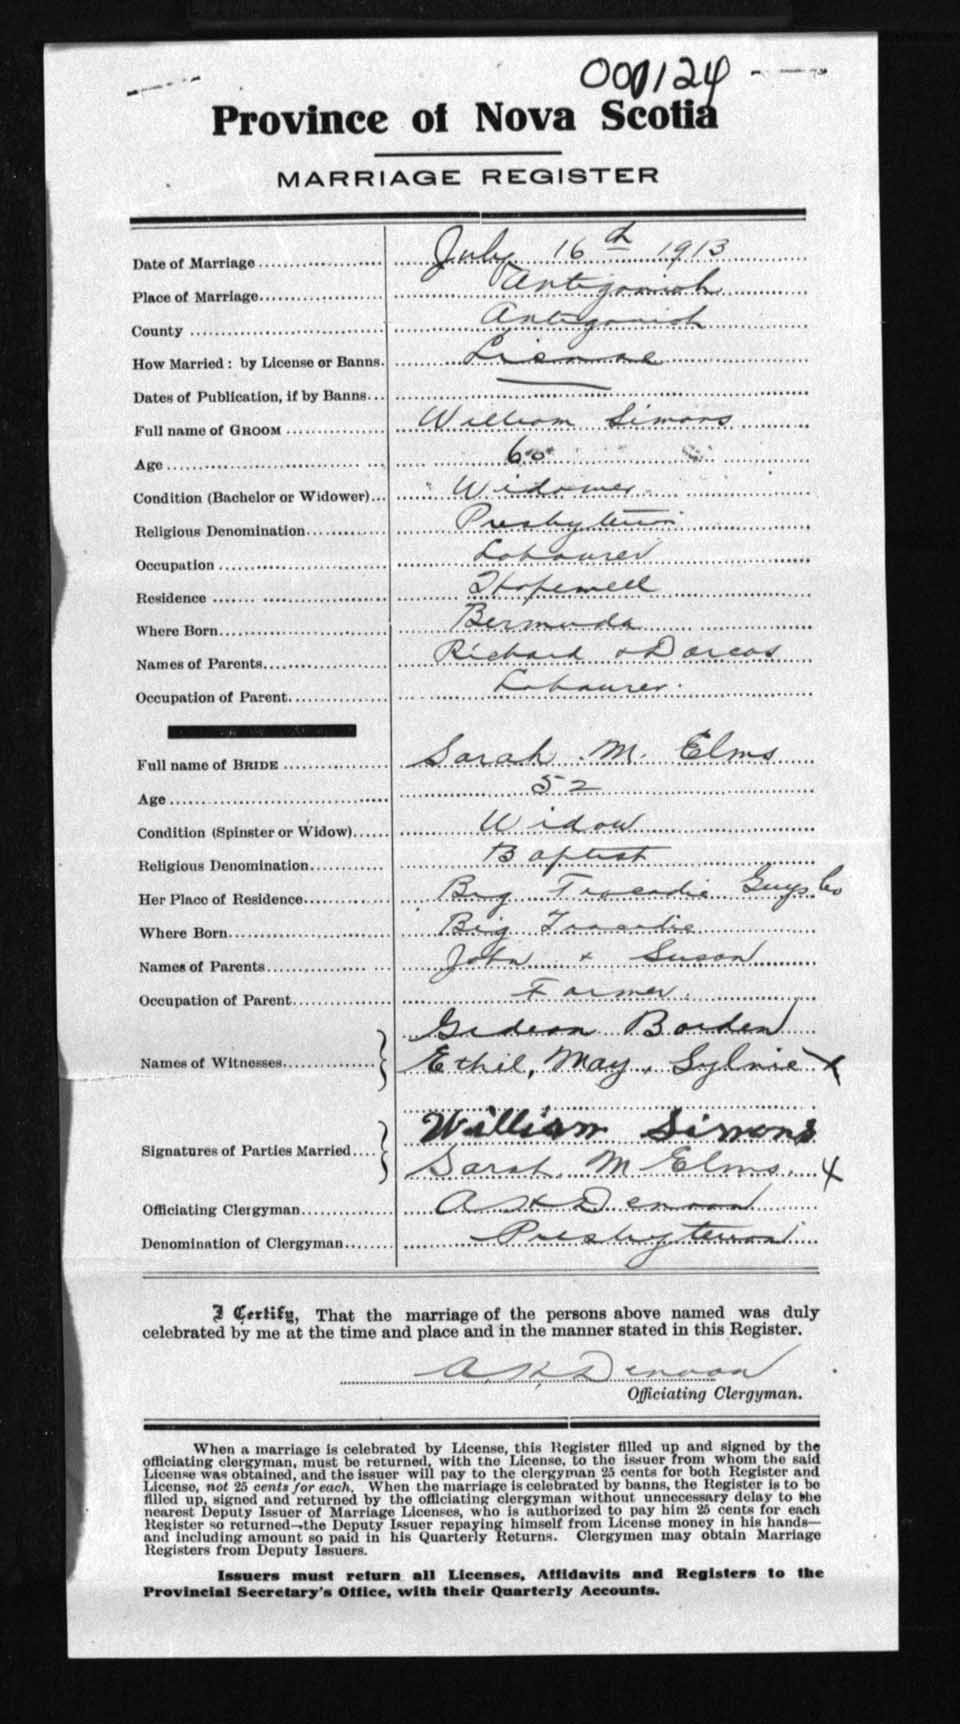 000124
Province of Nova Scotia
MARRIAGE REGISTER
Date of Marriage July 16th 1913
Place of Marriage Antigonish
County Antigonish
How Married: by License or Banns. License
Dates of Publication, if by Banns
Full name of GROOM William Simons
Age 60
Condition (Bachelor or Widower) Widower
Religious Denomination Presbyterian
Occupation Labourer
Residence Hopewell
Where Born Bermuda
Names of Parents Richard & Dorcas
Occupation of Parent Labourer.
Full name of BRIDE Sarah M. Elms
Age 52
Condition (Spinster or Widow) Widow
Religious Denomination Baptist
Her Place of Residence Big Tracadie Guys Co
Where Born Big Tracadie
Names of Parents John & Susan
Occupation of Parent Farmer.
Gideon Borden
Names of Witnesses Ethil, May, Sylvie X
William Simons
Signatures of Parties Married
Sarah M Elms. X
Officiating Clergyman A H Denoon
Denomination of Clergyman Presbyterian
I Certify, That the marriage of the persons above named was duly
celebrated by me at the time and place and in the manner stated in this Register.
A. H. Denoon
Officiating Clergyman.
When a marriage is celebrated by License, this Register filled up and signed by the
officiating clergyman, must be returned, with the License, to the issuer from whom the said
License was obtained, and the issuer will pay to the clergyman 25 cents for both Register and
License, not 25 cents for each. When the marriage is celebrated by banns, the Register is to be
filled up, signed and returned by the officiating clergyman without unnecessary delay to the
nearest Deputy Issuer of Marriage Licenses, who is authorized to pay him 25 cents for each
Register so returned—the Deputy Issuer repaying himself from License money in his hands—
and including amount so paid in his Quarterly Returns. Clergymen may obtain Marriage
Registers from Deputy Issuers.
Issuers must return all Licenses, Affidavits and Registers to the
Provincial Secretary's Office, with their Quarterly Accounts.